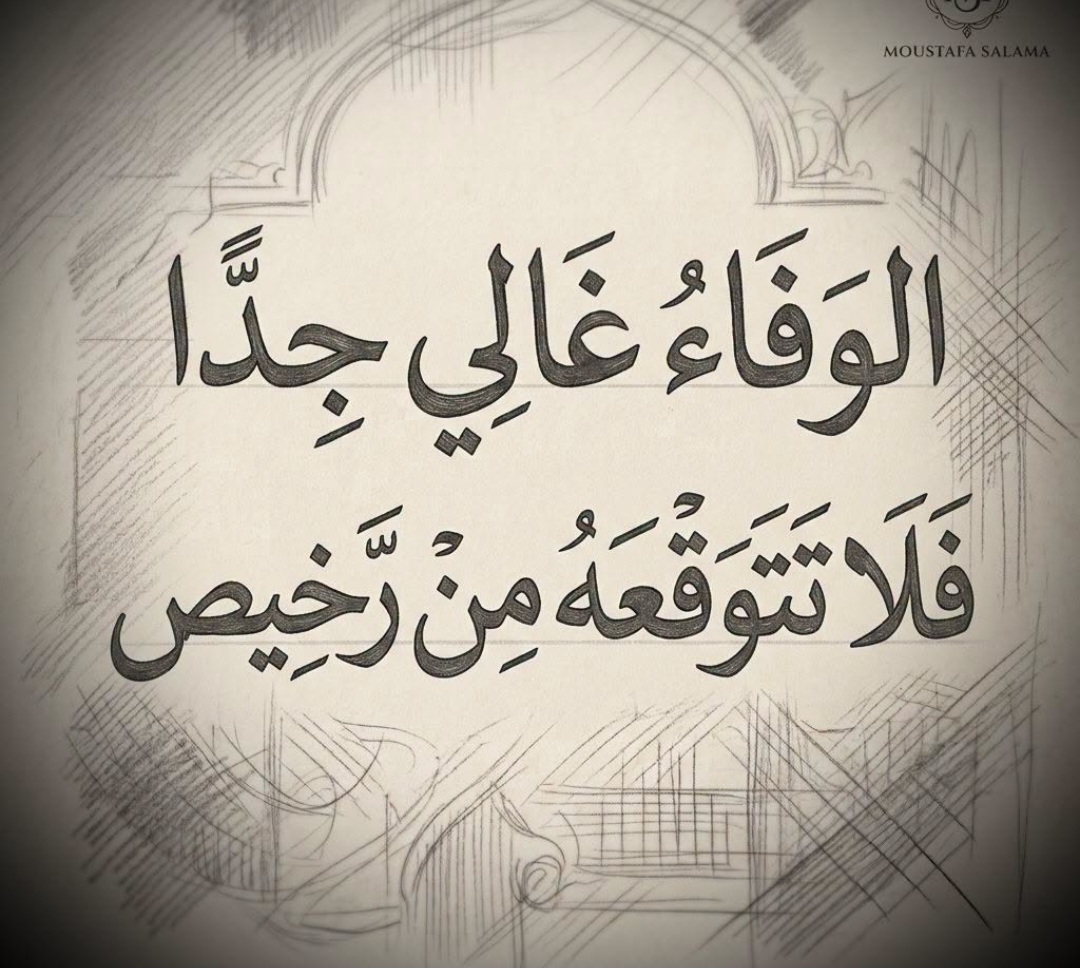 MOUSTAFA SALAMA
الوَفَاءُ غَالِي جِدًّا
فَلَا تَتَوَقْعَهُ مِنْ رَّخِيص